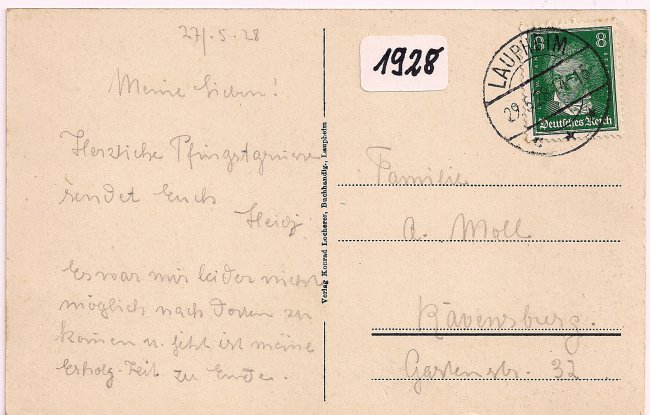 27/.5.28
Meine Lieben!
Herzliche Pfingstgrüsse
sendet Euch
Heidj
Es war mir leider nicht
möglich nach dorten zu
kommen u. jetzt ist meine
Erholg-Zeit zu Ende.
Verlag Konrad Locherer, Buchhandlg., Laupheim
1928
LAUPHEIM
29.5
8 8
Deutsches Reich
Familie
A. Moll
Ravensburg.
Gartenstr. 32